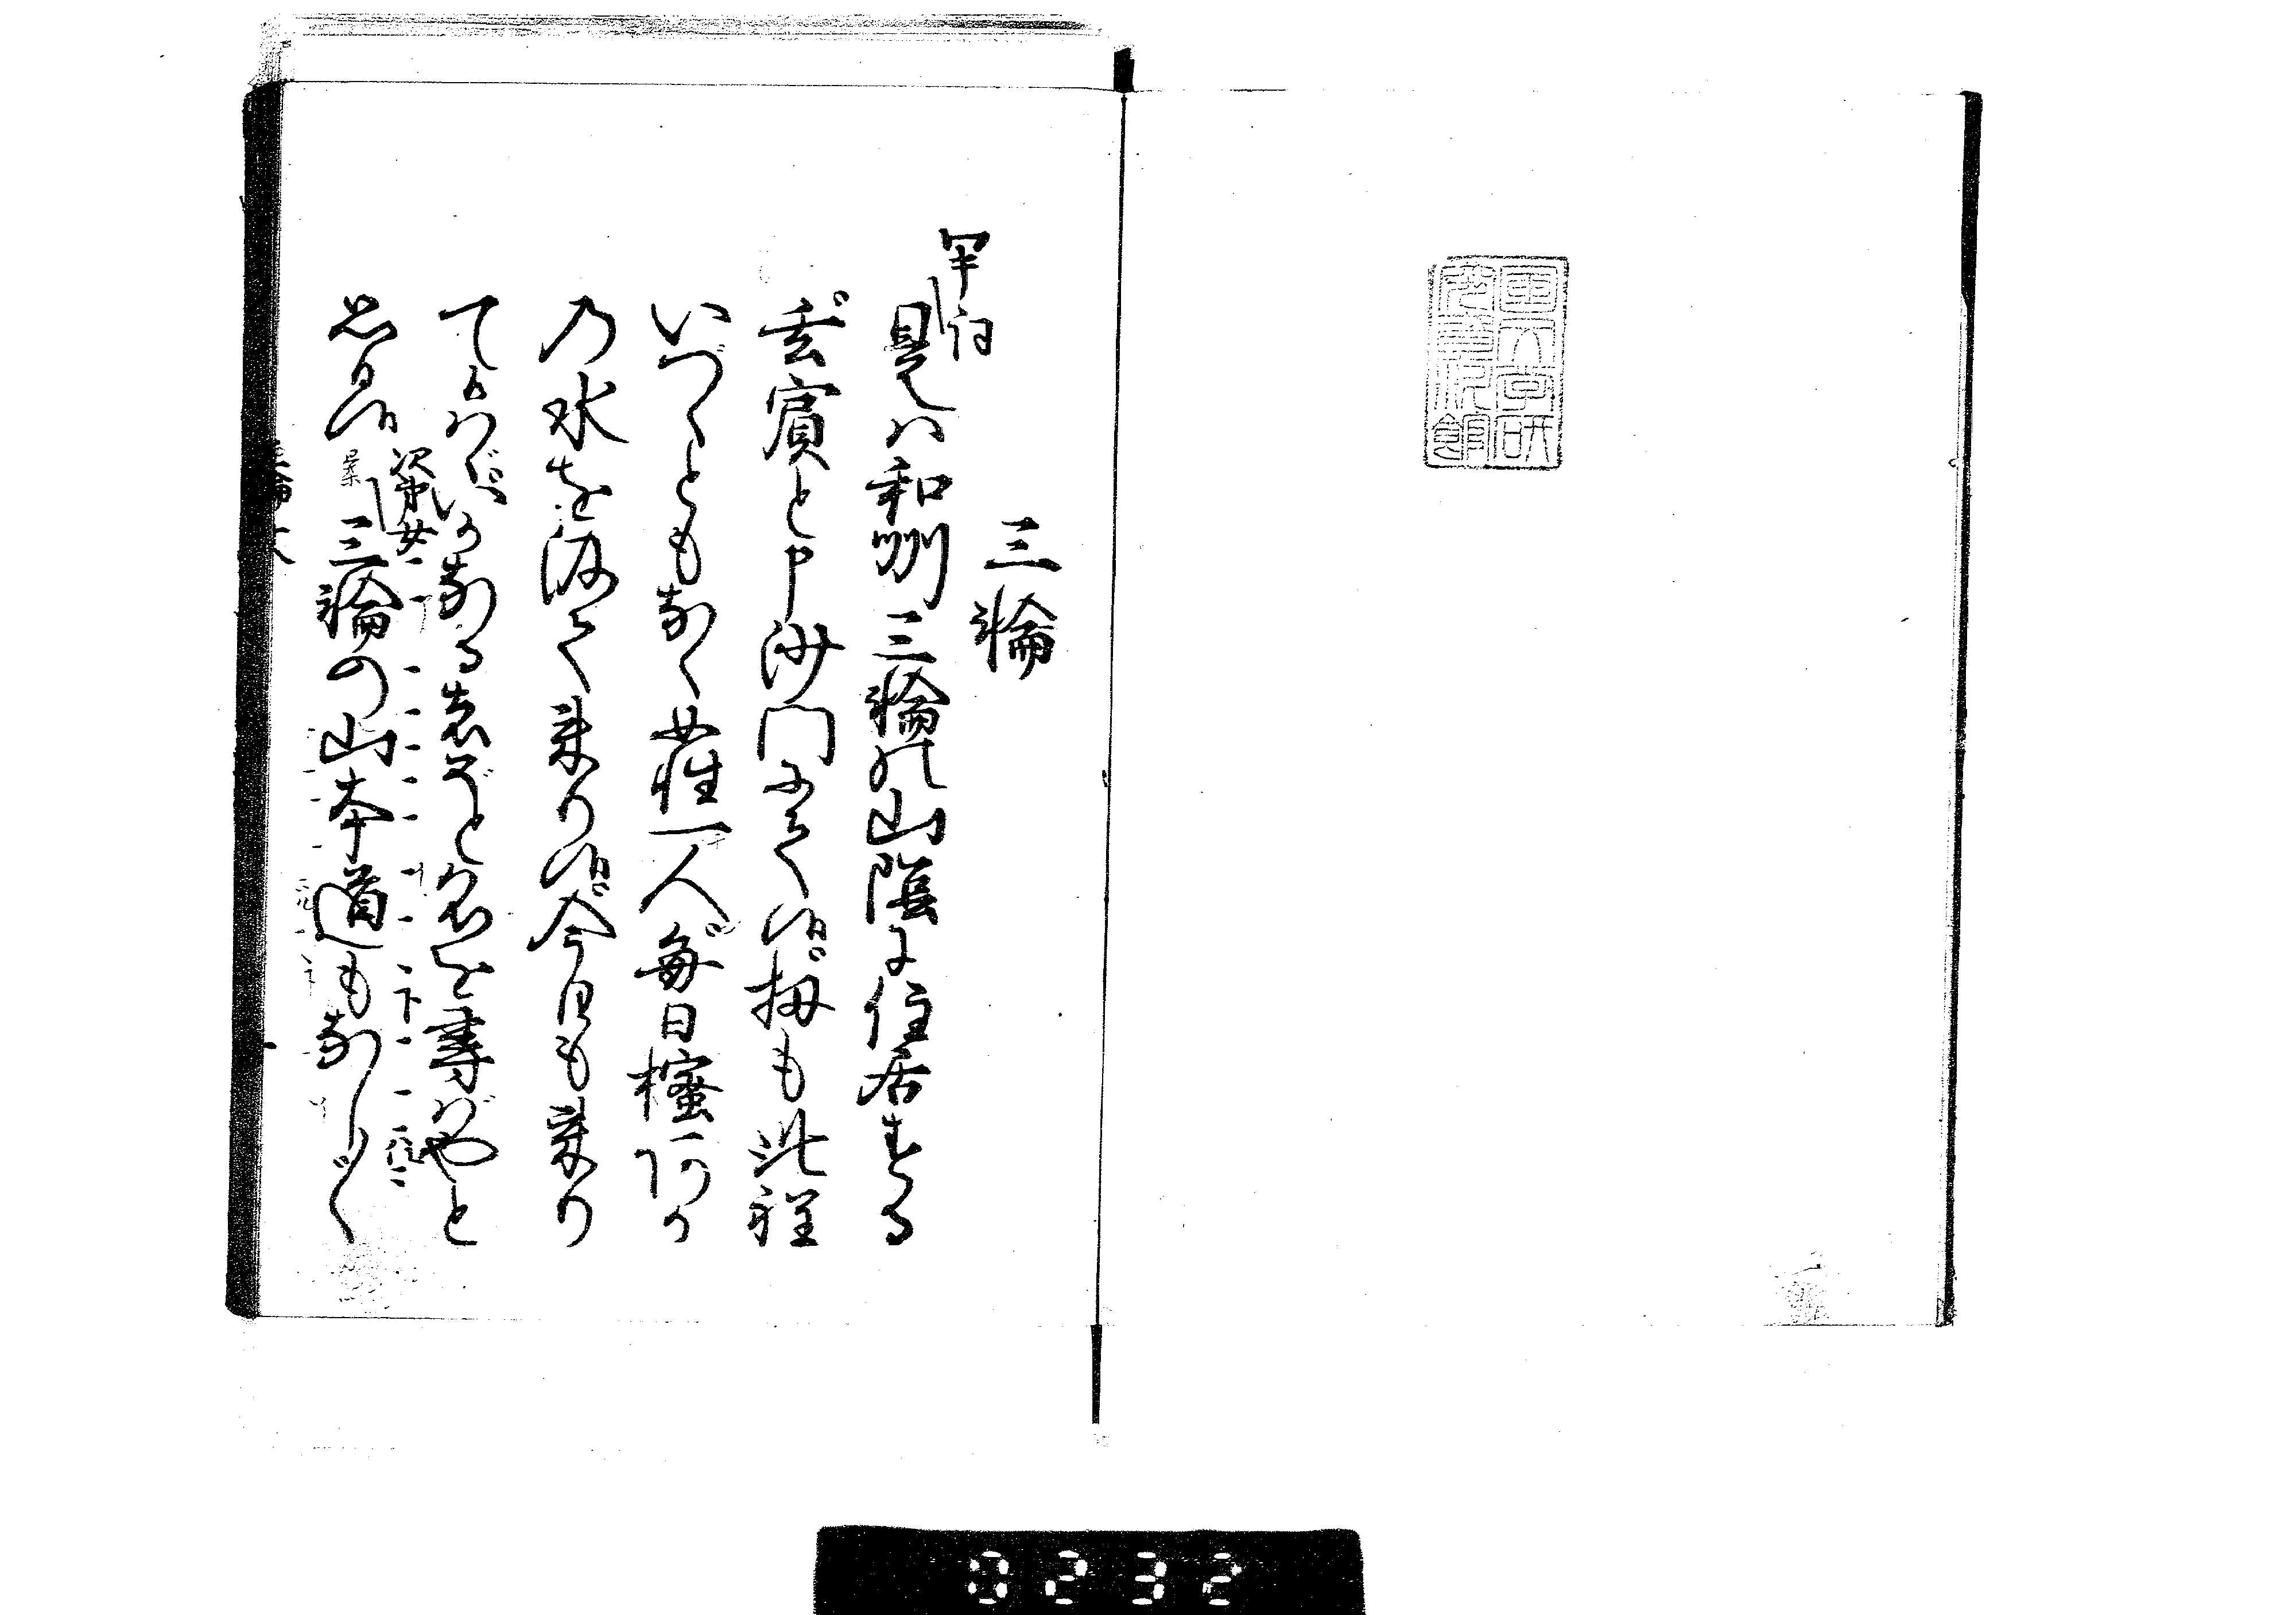 三輪
ワキ詞
是は和州三輪の山陰に住居する
玄賓と申沙門にて候扨も此程
いづくともなく女性一人毎日樒閼伽
の水を汲て来り候今日も来り
てあらばいかなる者ぞと名を尋ばやと
思ひ候
次第女
三輪の山本道もなし〳〵
国文学研
究資料館
0232